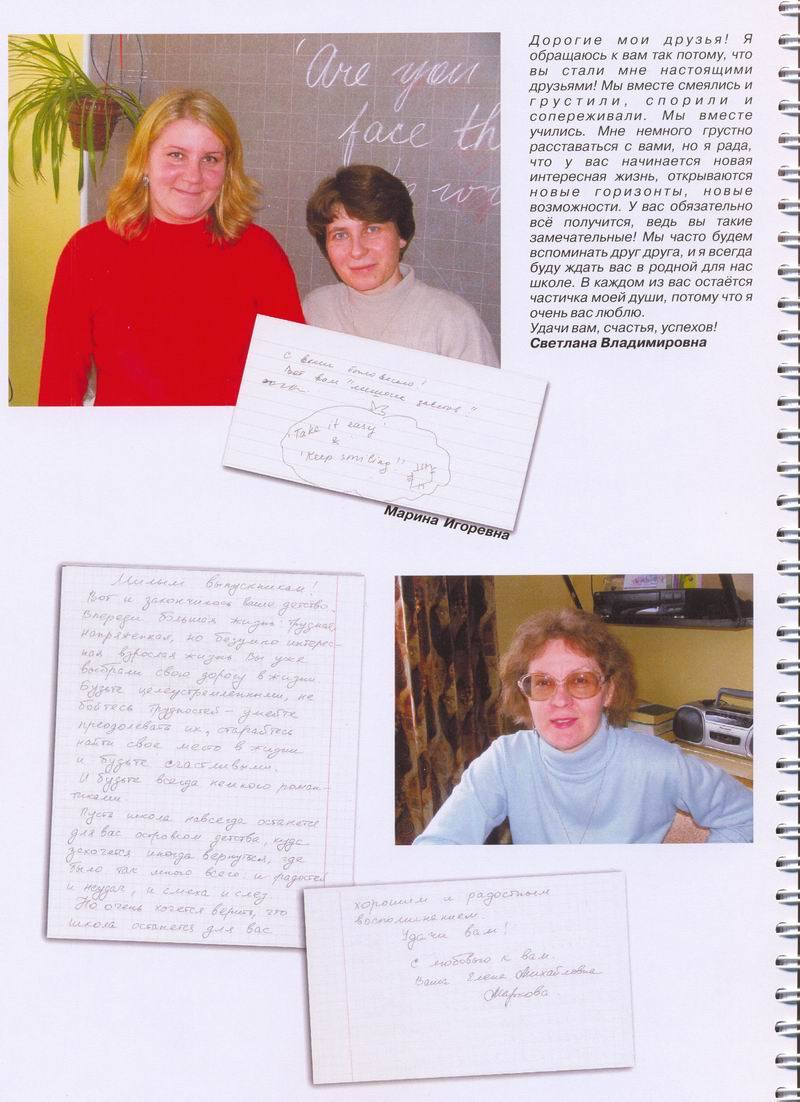 'Are you
face th
Дорогие мои друзья! Я
обращаюсь к вам так потому, что
вы стали мне настоящими
друзьями! Мы вместе смеялись и
грустили, спорили и
сопереживали. Мы вместе
учились. Мне немного грустно
расставаться с вами, но я рада,
что у вас начинается новая
интересная жизнь, открываются
новые горизонты, новые
возможности. У вас обязательно
всё получится, ведь вы такие
замечательные! Мы часто будем
вспоминать друг друга, и я всегда
буду ждать вас в родной для нас
школе. В каждом из вас остаётся
частичка моей души, потому что я
очень вас люблю.
Удачи вам, счастья, успехов!
Светлана Владимировна
С вами было весело!
Вот вам "мешочек заветов":
"Take it easy"
&
"Keep smiling!"
Марина Игоревна
Милым выпускникам!
Вот и закончилось ваше детство.
Впереди большая жизнь: трудная,
напряженная, но безумно интерес-
ная взрослая жизнь. Вы уже
выбрали свою дорогу в жизни.
Будьте целеустремленными, не
бойтесь трудностей – умейте
преодолевать их, старайтесь
найти свое место в жизни
и будьте счастливыми.
И будьте всегда немного роман-
тиками.
Пусть школа навсегда останется
для вас островом детства, куда
захочется иногда вернуться, где
было так много всего: и радостей
и неудач, и смеха и слез.
Но очень хочется верить, что
школа останется для вас
хорошим и радостным
воспоминанием.
Удачи вам!
С любовью к вам.
Ваша Елена Михайловна
Маркова.